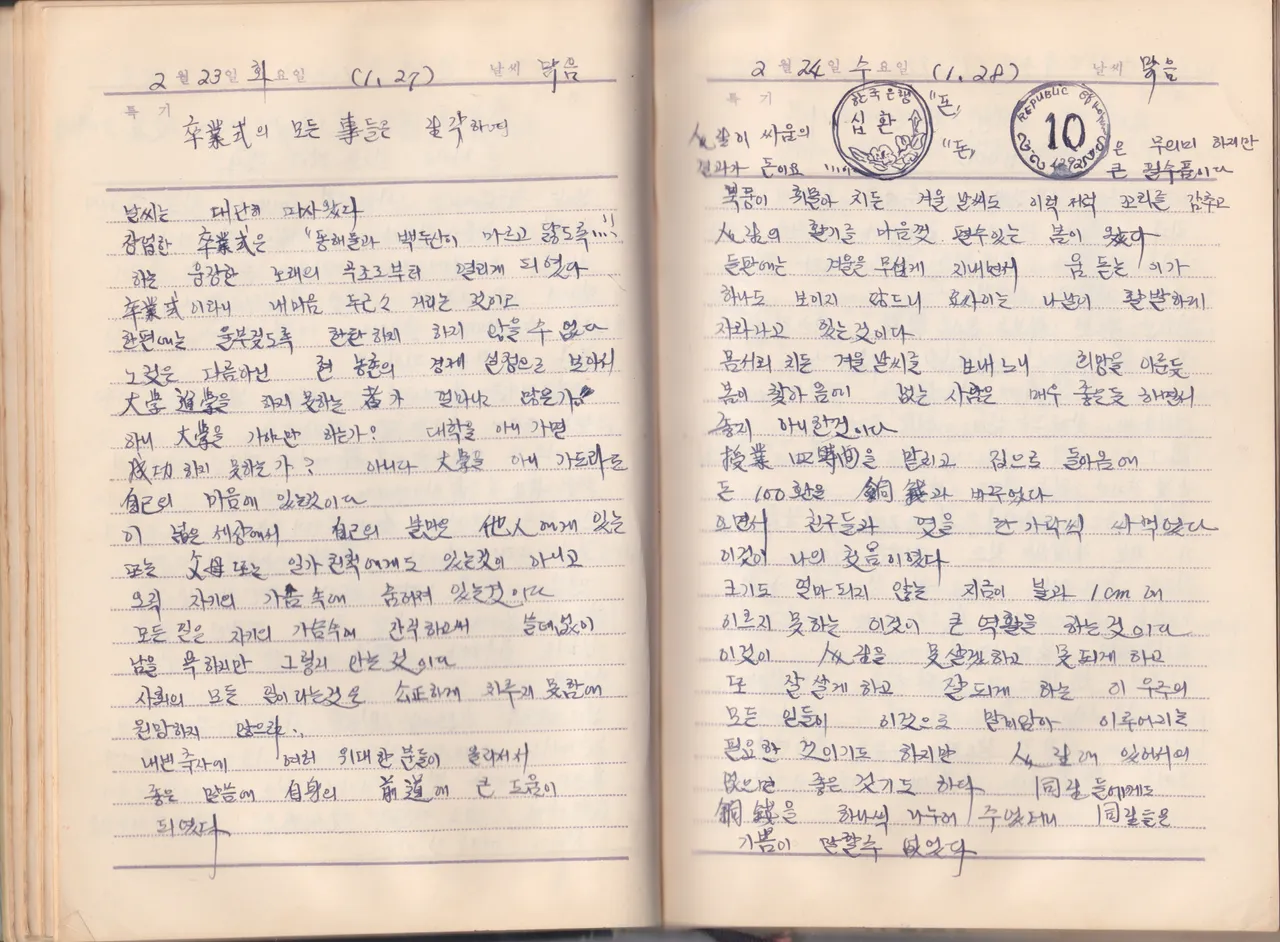 2월 23일 화요일 (1. 27) 날씨 맑음
특기
卒業式의 모든 事들을 생각하며
날씨는 대단히 따사왔다
장엄한 卒業式은 "동해물과 백두산이 마르고 닳도록…!!
하는 웅장한 노래의 곡조로부터 열리게 되였다
卒業式이라니 내마음 두근 거리는 것이고
한편에는 울부짖도록 한탄하지 하지 않을 수 없다
다름아닌 현 농촌의 경제 실정으로 보아서
大學 進學을 하지 못하는 者가 얼마나 많은가
하니 大學을 가야만 하는가? 대학을 아니 가면
成功하지 못하는가? 아니다 大學을 아니 가드라도
自己의 마음에 있는것이다
이 넓은 세상에서 自己의 불만은 他人에게 있는
또는 父母 또는 일가 친척에게도 있는것이 아니고
오직 자기의 가슴 속에 숨어져 있는것이다
모든 일은 자기의 가슴속에 간직하고써 쓸데없이
남을 욕하지만 그렇지 안는것이다
사회의 모든 일이라는것은 公正하게 차루지 못함에
원망하지 않으랴..
내빈 축사에 여러 위대한 분들이 올라서서
좋은 말씀에 自身의 前途에 큰 도움이
되였다
2월 24일 수요일 (1. 28) 날씨 맑음
특기
한국은행 십환 "돈, REPUBLIC OF KOREA 10 4292
人길이 싸움의 "돈, 은 무의미 하지만
결과가 돈이요 큰 필수품이다
북풍이 휘몰아 치든 겨울 날씨도 이럭저럭 꼬리를 감추고
人길의 활기를 마음껏 펼수있는 봄이 왔다
들판에는 겨울을 무섭게 지내면서 움 돋는 이가
하나도 보이지 않드니 요사이는 나날이 활발하게
자라나고 있는것이다
몸서리 치든 겨울 날씨를 보내노니 희망을 이룬듯
봄이 찾아옴에 없는 사람은 매우 좋은듯 하면서
좋지 아니한것이다
授業 四時間을 말리고 집으로 돌아옴에
돈 100환을 銅錢과 바꾸었다
오면서 친구들과 엿을 한가락씩 싸먹었다
이것이 나의 첫음이였다
크기도 얼마되지 않는 지금이 불과 1cm에
이르지 못하는 이것이 큰 역활을 하는것이다
이것이 人길을 못살겠하고 못되게 하고
또 잘살게 하고 잘되게 하는 이 우주의
모든 일들이 이것으로 말미암아 이루어지는
필요한 것이기도 하지만 人길에 있어서의
없으면 좋은 것기도 하다 同生들에게도
銅錢을 하나씩 나누어 주었더니 同生들은
기쁨이 말할수 없었다